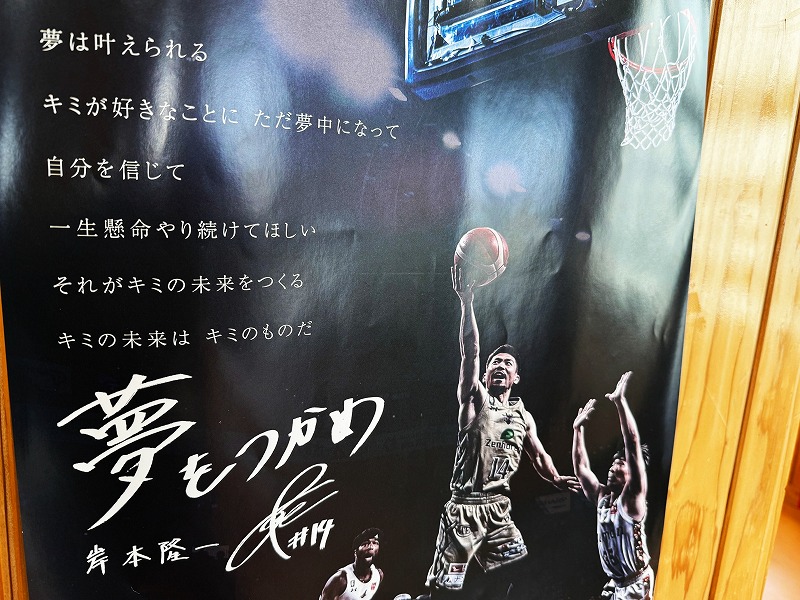 夢は叶えられる
キミが好きなことに ただ夢中になって
自分を信じて
一生懸命やり続けてほしい
それがキミの未来をつくる
キミの未来は キミのものだ
夢をつかめ
岸本隆一
#14
14